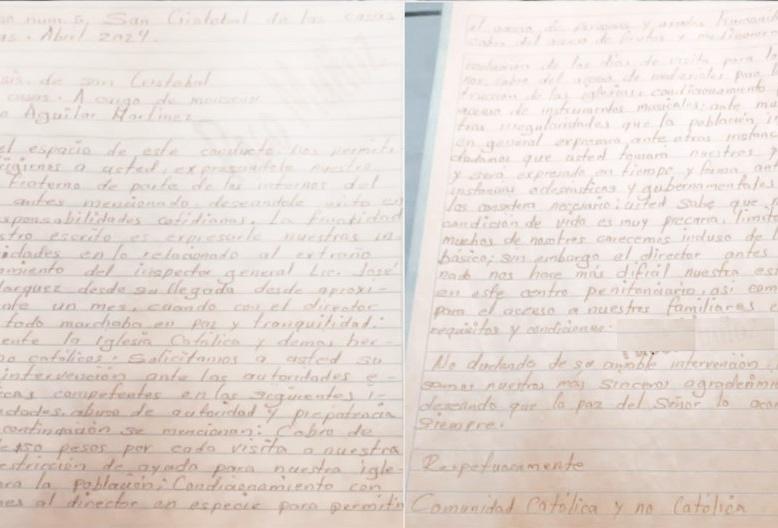 num. 5, San Cristobal de las casas
Abril 2024.
sis de san Cristobal
casas. A cargo de monseñor
o Aguilar Martinez
el espacio de este conducto nos permite
a usted, expresandole nuestro
fraterno de parte de los internos del
antes mencionado, deseandole exito en
sponsabilidades cotidianas. La finalidad
stro escrito es expresarle nuestras in
idades en lo relacionado al extraño
amiento del inspector general Lic. José
arquez desde su llegada desde aproxi-
ate un mes, cuando con el director
todo marchaba en paz y tranquilidad.
ente la Iglesia Católica y demas her-
no católicos. Solicitamos a usted su
intervención ante las autoridades e-
icas competentes en las siguientes i-
idades, abuso de autoridad y prepotencia
continuación se mencionan: Cobro de
150 pesos por cada visita a nuestra
estricción de ayuda para nuestra igle-
ara la población; Condicionamiento con
nes al director en especie para permitir
el acceso de personas y
cobro del acceso de frutas y medicamen
de los dias de visita para la
cobro del acceso de materiales para
trucción de las iglesias; condicionamiento
acceso de instrumentos musicales; ante mu
tras irregularidades que la población in
en general expresara ante otras instanc
dadanos que usted tomara nuestras
y sera expresado en tiempo y forma ant
instancias eclesiasticas y gubernamentales
los considera necesario; usted sabe que
condición de vida es muy precaria, limit
muchos de nosotros carecemos incluso de l
basico; sin embargo el director antes
nado nos hace mas dificil nuestra est
en este centro penitenciario, asi com
para el acceso a nuestros familiares
requisitos y condiciones.
No dudando de su amable intervención,
samos nuestros más sinceros agradecimien
deseando que la paz del Señor lo aco
siempre.
Respetuosamente
Comunidad Católica y no Católica